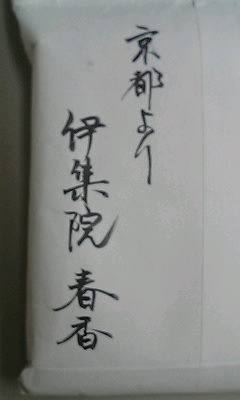 京都より
伊集院 春香